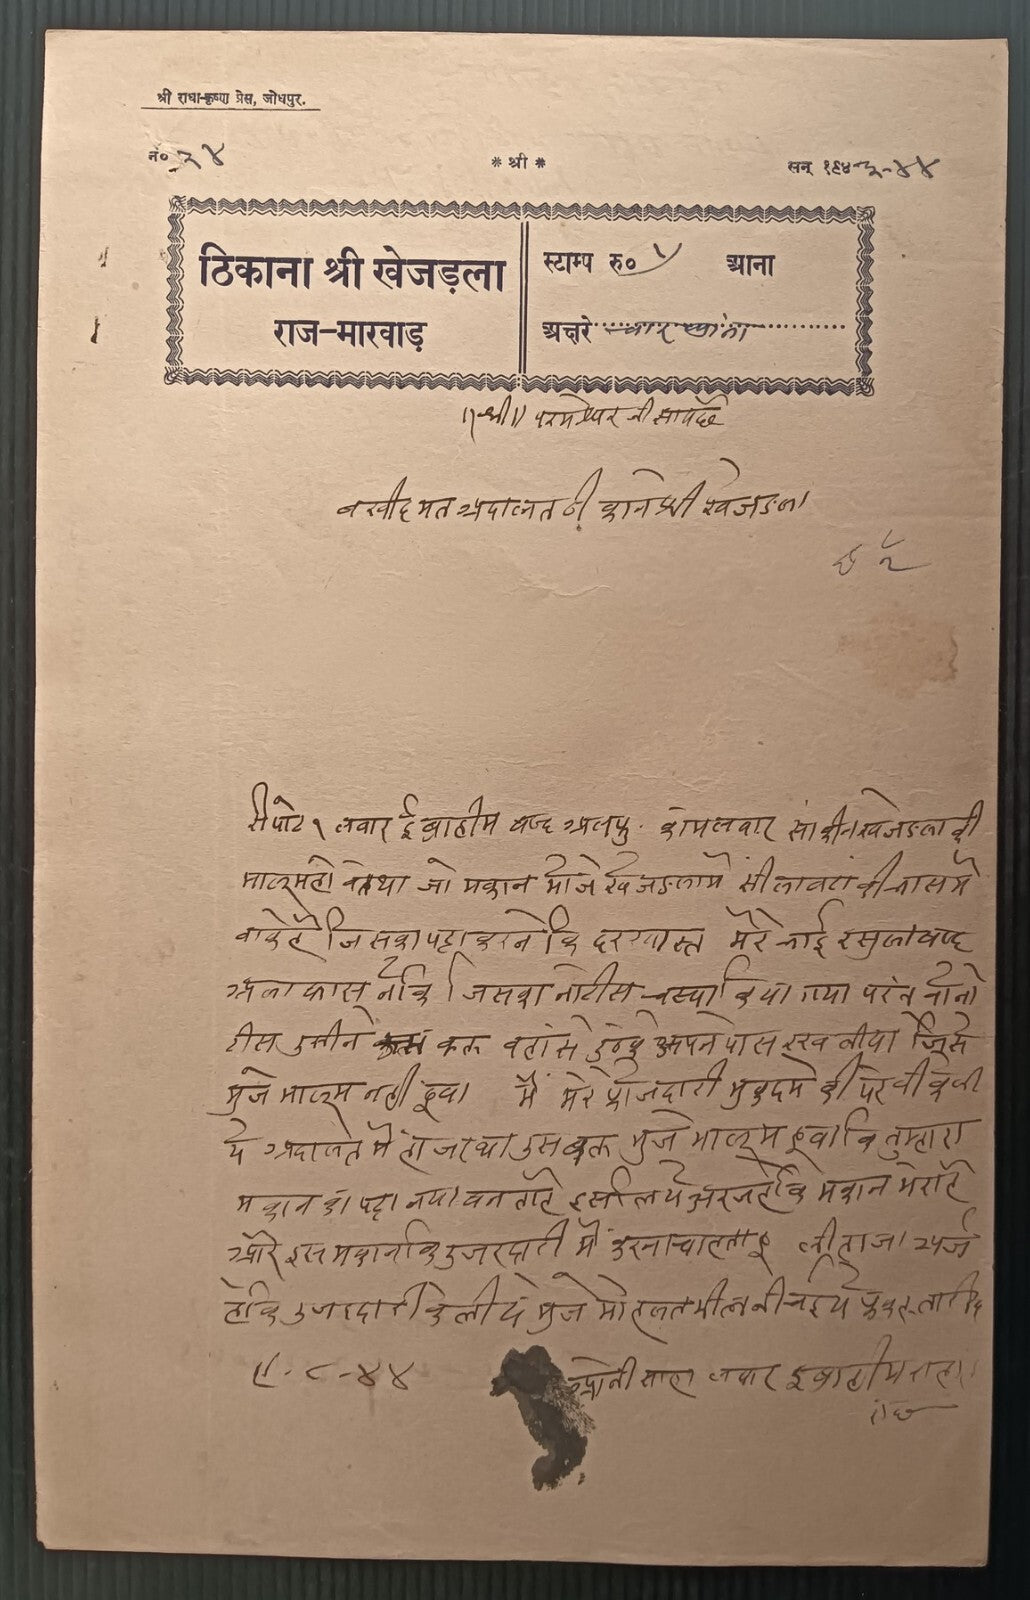 श्री राधा-कृष्ण प्रेस, जोधपुर.
नं० २४
* श्री *
सन् १९४३-४४
ठिकाना श्री खेजड़ला
राज-मारवाड़
स्टाम्प रु० आना
अक्षरे चार आंना
॥श्री॥ परमेश्वर जी साय छै
बखीदमत अदालत ठी काने श्री खेजडला
रीपोट लवार ईब्राहीम वल्द कोमलवार साकीन खेजडला की
मालुम हो जो मकान मोजे खेजडला मे सीलावटां की वास मे
वाके है जिसका पट्टा करने कि दरखास्त मेरे भाई रसुल वल्द
जिसका नोटीस चस्पा किया गया परंत वो नो
टीस उसीने वहां से अपने पास रख लीया जिसे
मुजे मालुम नही हुवा मैं मेरे फोजदारी मुकदमे की पेरवी के ली
ये अदालत मे हाजर था उस वक्त मुजे मालुम हुवा कि तुम्हारा
मकान का पट्टा नया बनता है इसलिये अरज है कि मकान मेरा है
और इस मकान कि उजरदारी मैं करना चाहता हु लीहाजा अर्ज
है कि उजरदारी के लीये मुजे मोहलत मीलनी चईये फकत ता
८-४४
लवार इब्राहीम